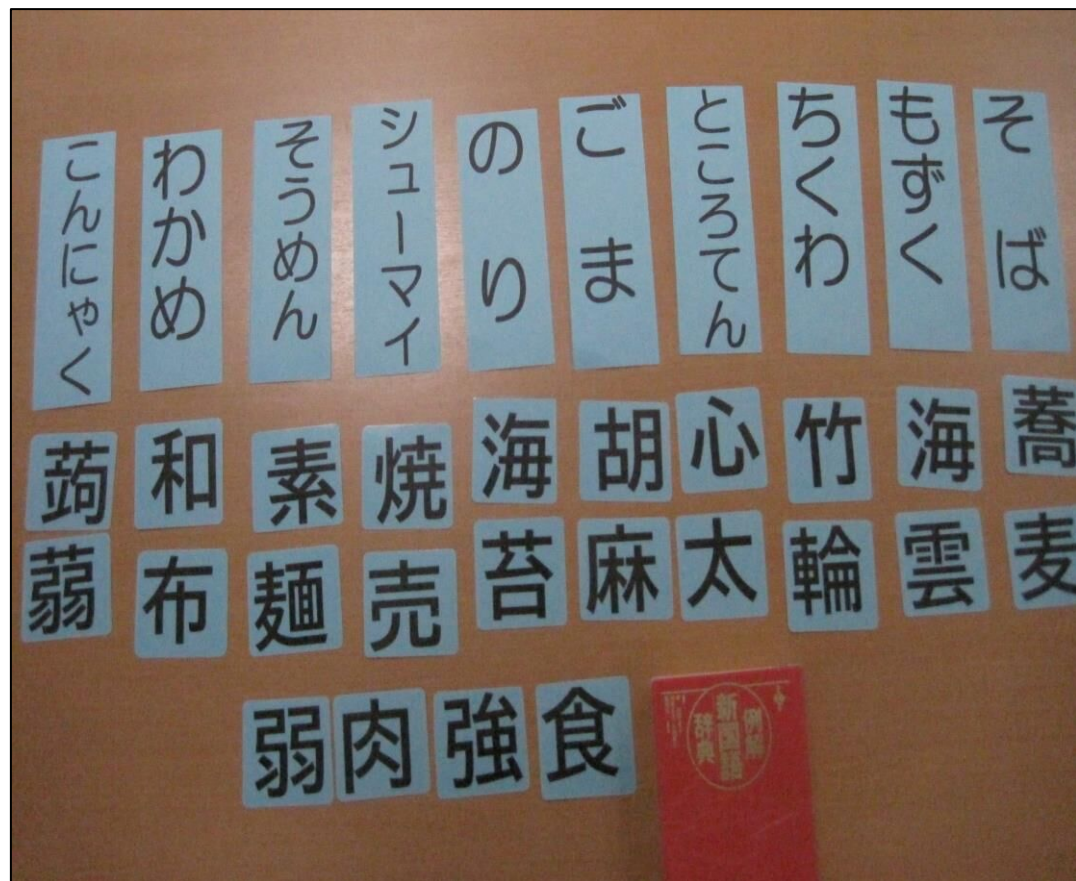 そば
もずく
ちくわ
ところてん
ごま
のり
シューマイ
そうめん
わかめ
こんにゃく
蕎麦
海雲
竹輪
心太
胡麻
海苔
焼売
素麺
和布
蒟蒻
弱肉強食
例解
新国語
辞典